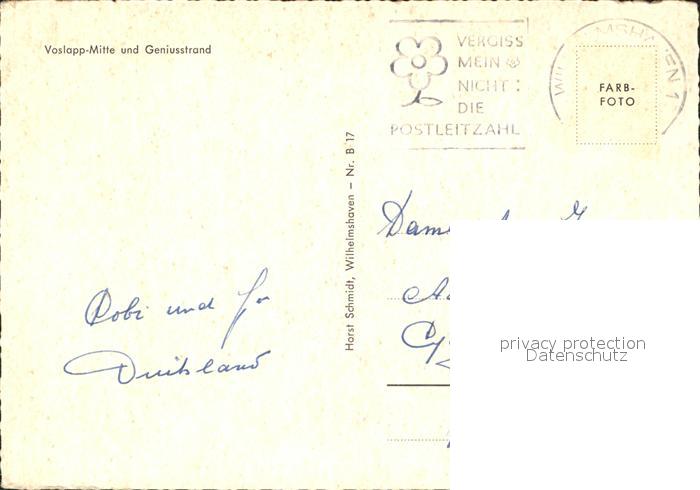 Voslapp-Mitte und Geniusstrand
VERGISS
MEIN
NICHT:
DIE
POSTLEITZAHL
FARB-
FOTO
Horst Schmidt, Wilhelmshaven – Nr. B 17
Robi und
Duitsland
privacy protection
Datenschutz